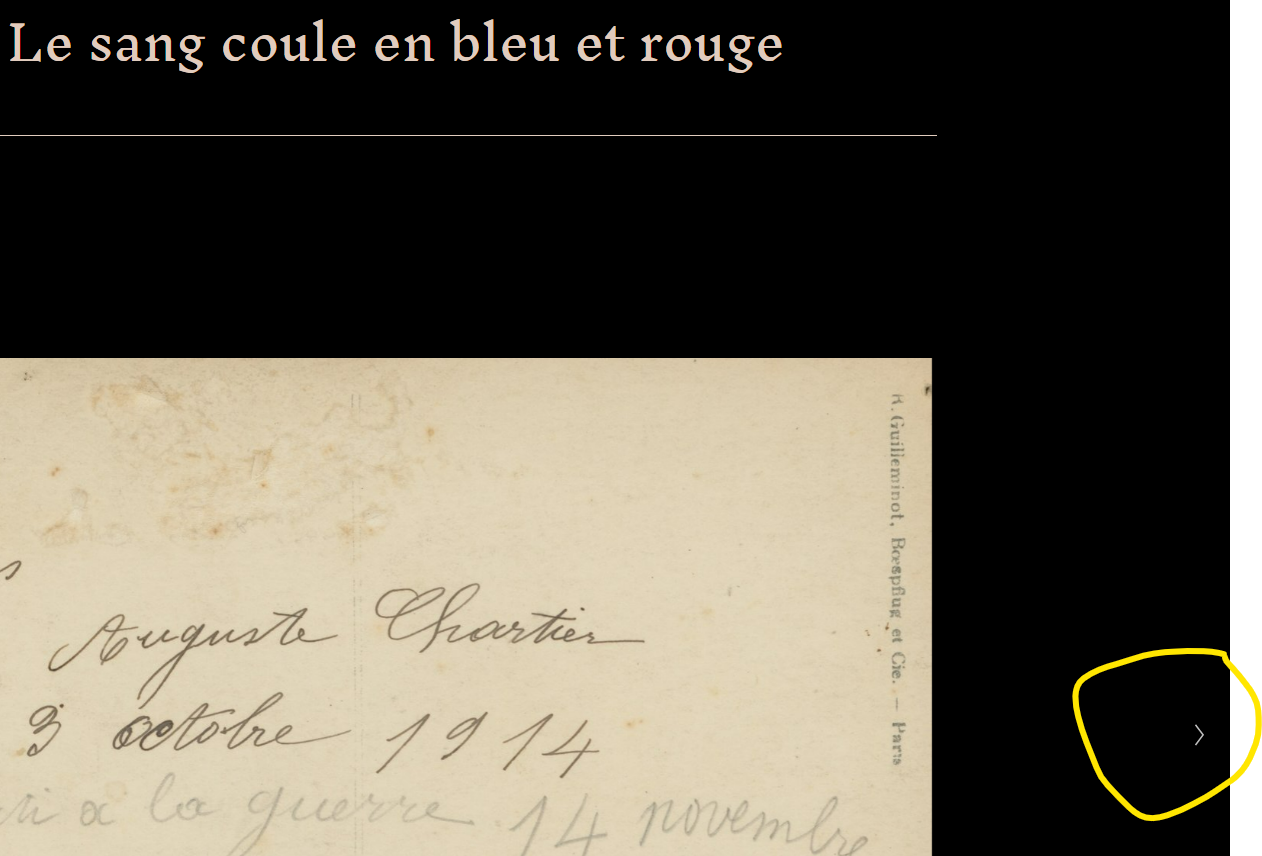 Le sang coule en bleu et rouge
R. Guilleminot, Bœspflug et Cie. — Paris
Auguste Chartier
3 octobre 1914
a la guerre 14 novembre